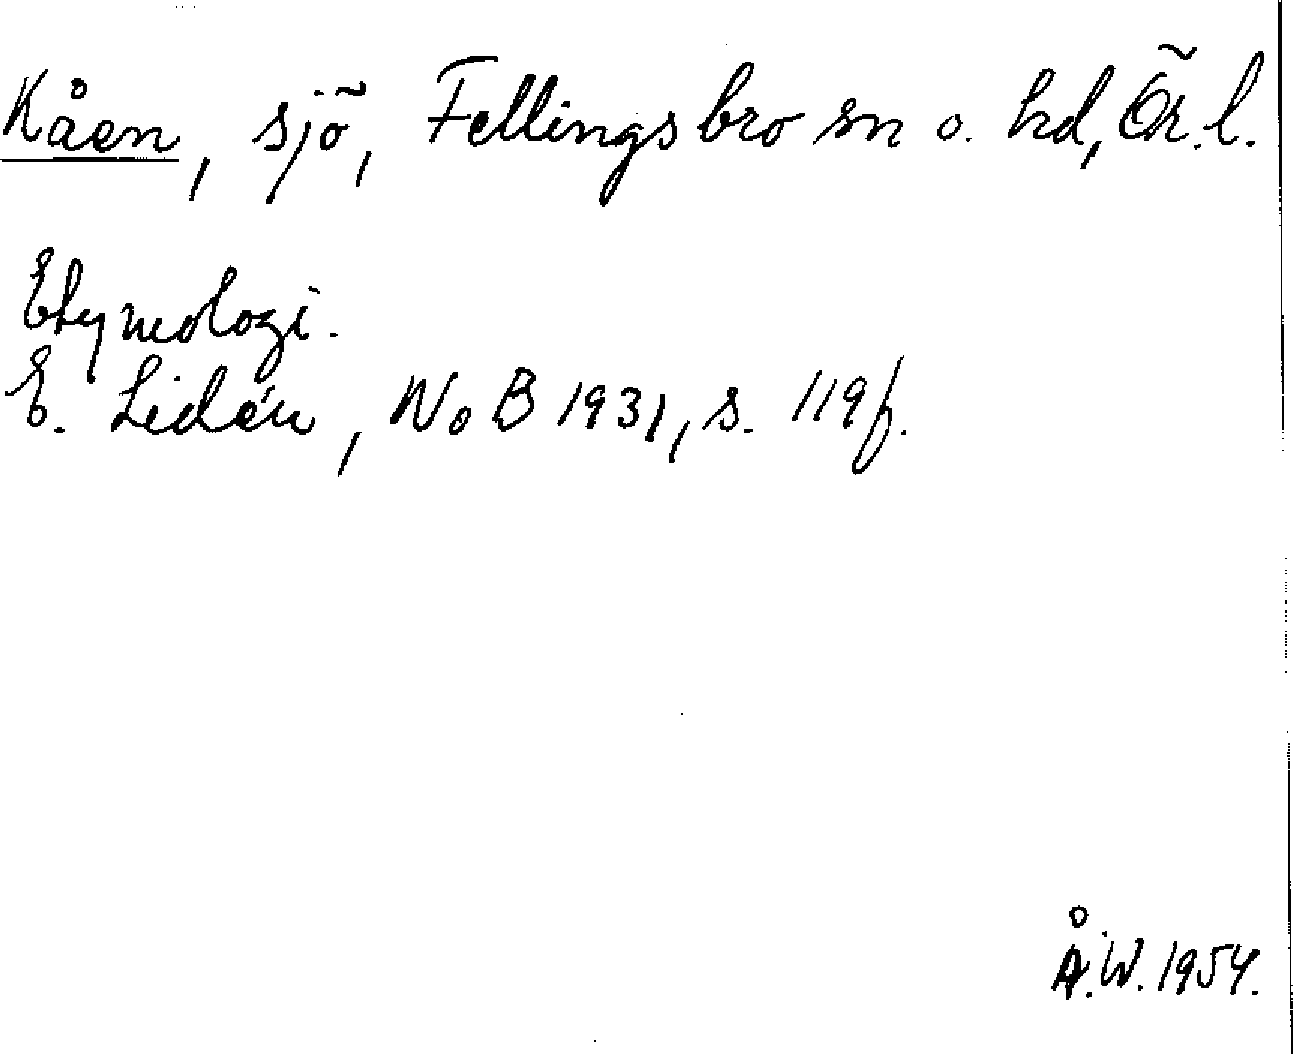 Kåen, sjö, Fellingsbro sn o. hd, Ör. l.
Etymologi.
E. Lidén, NoB 1931, s. 119f.
Å.W. 1954.